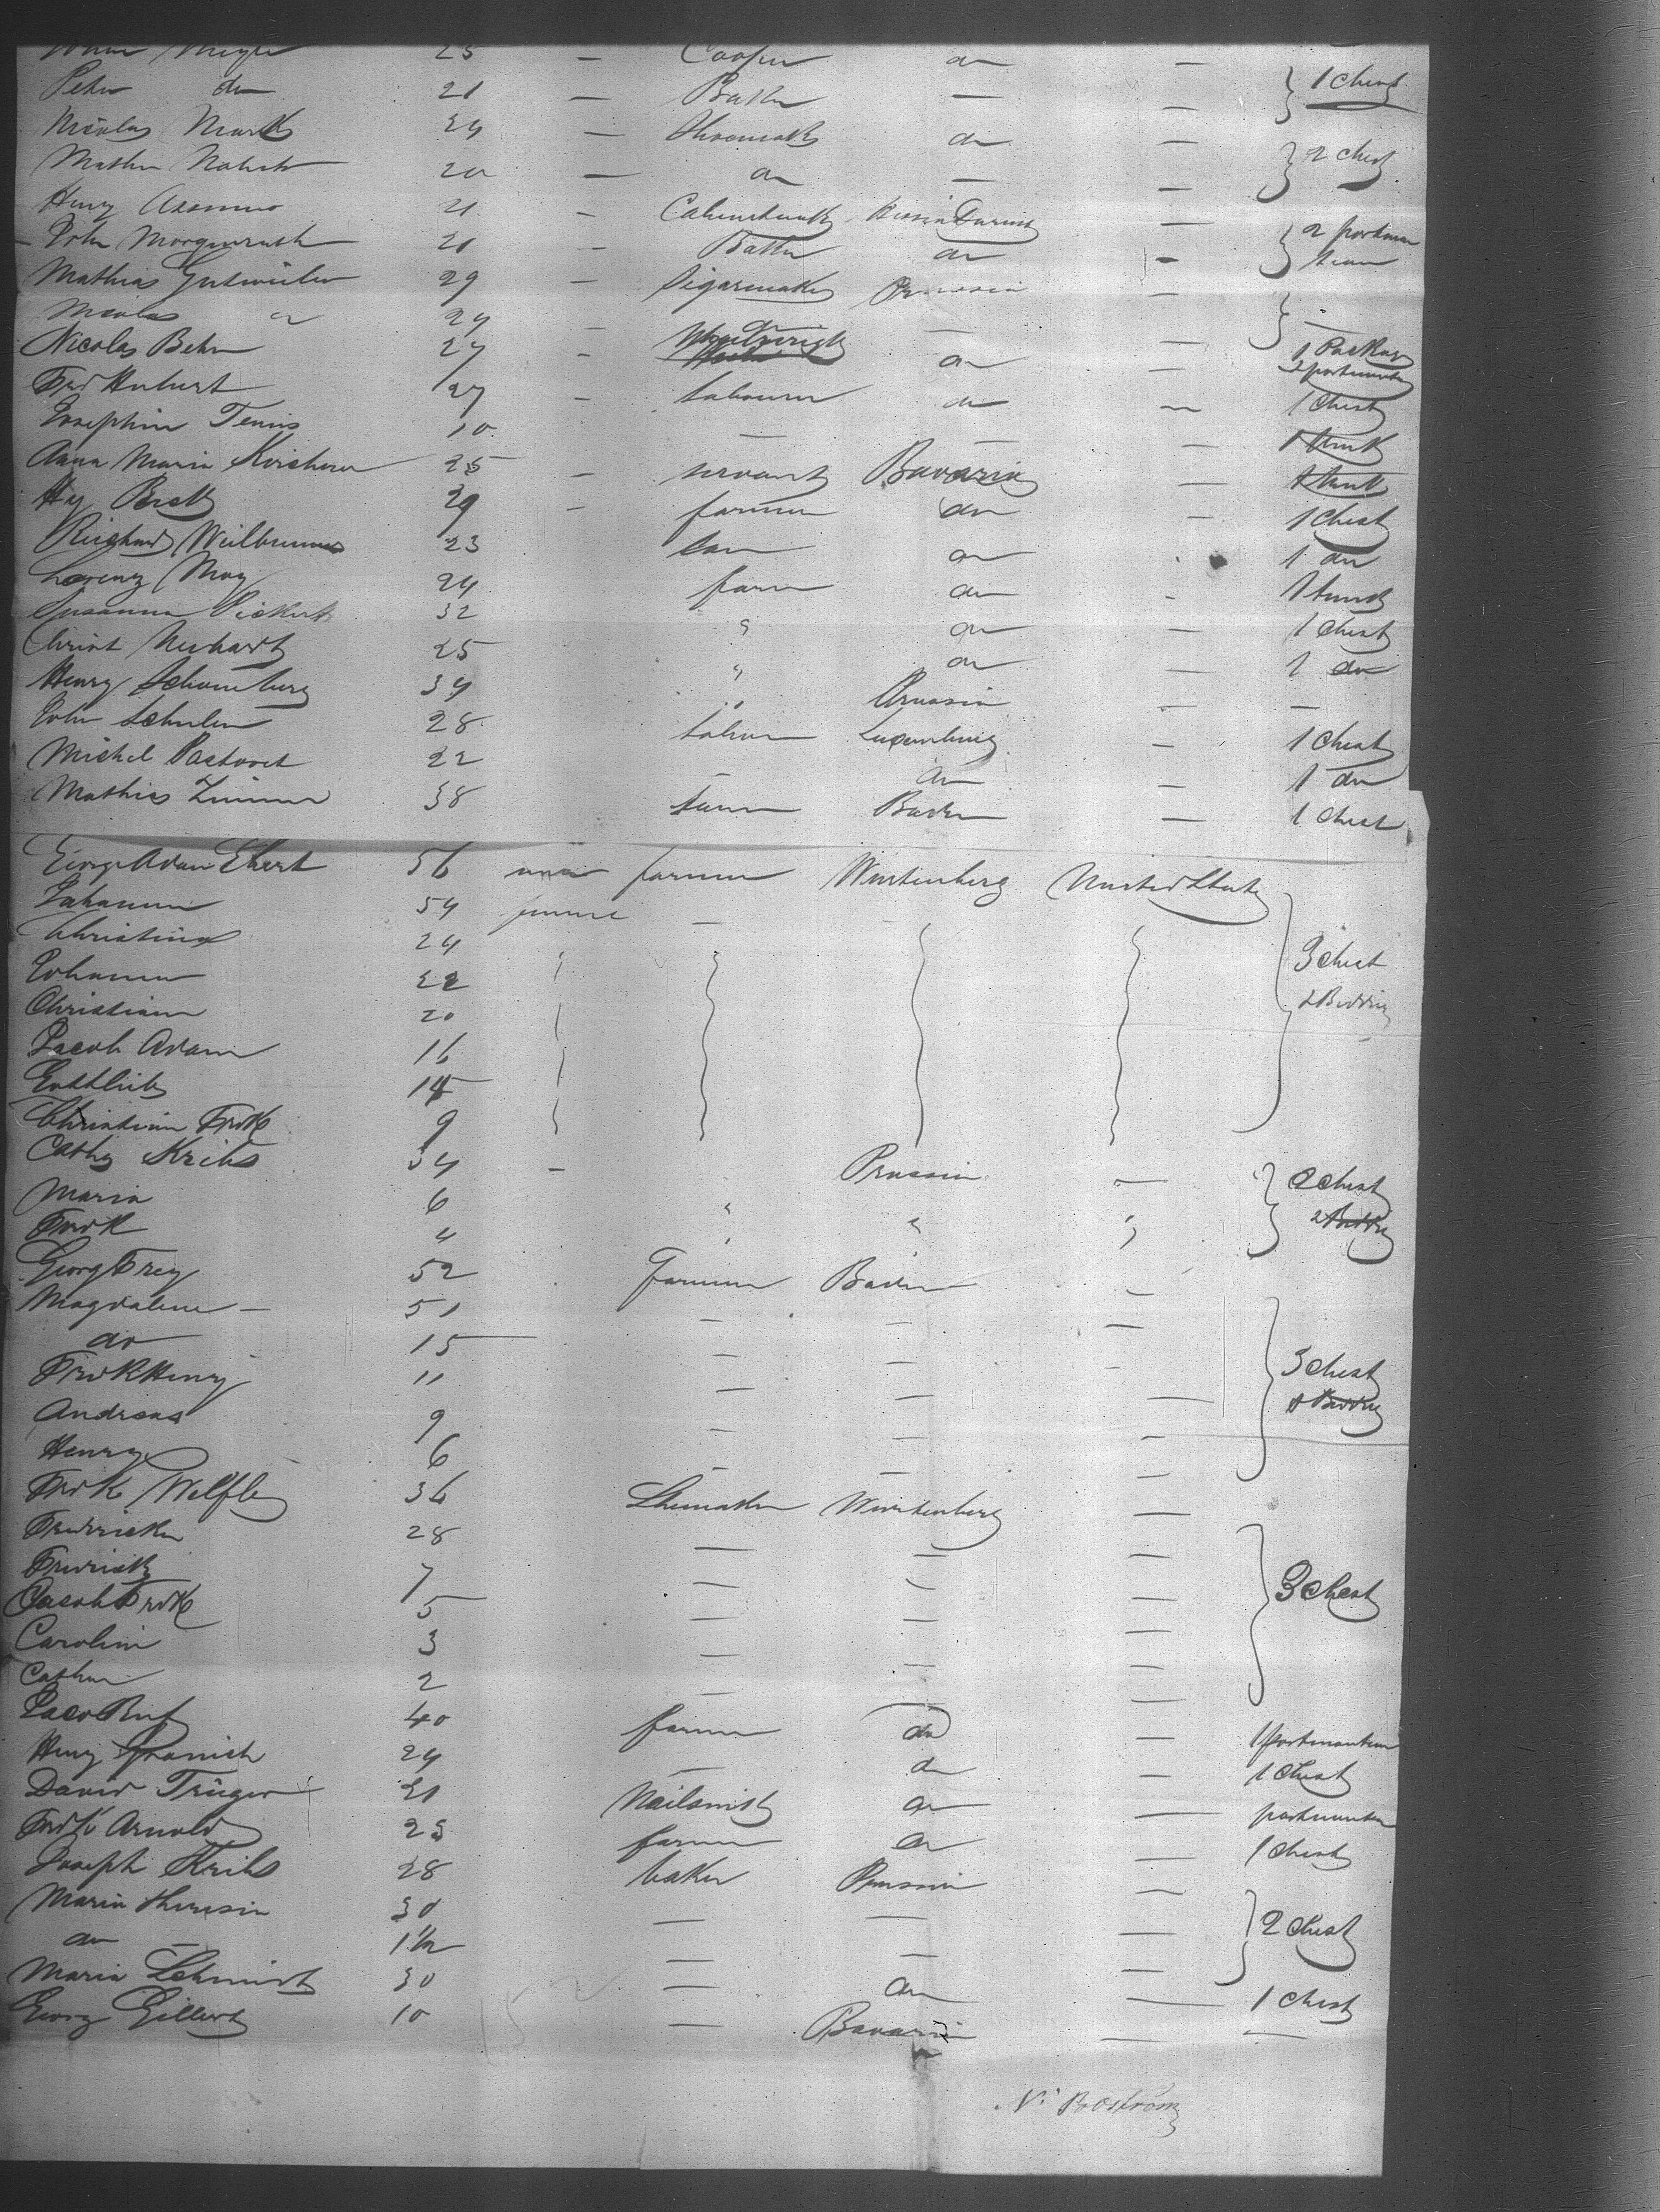 Meyer 25 — Cooper do —
Peter do 21 — Baker — — 1 Chest
Nicolas Mark 24 — Shoemak do —
Mathu 20 — do — — 2 Chest
Henry 21 — Cabinetmak Hessen Darmst —
John Morgenroth 21 — Baker do — 2 portman
Mathias Gutweiler 29 — Sigarmaker Prussia — teau
Nicolas do 24 — do — —
Nicolas Behr 27 — Wheelwright do — 1 Package
2 portmanteau
Fred Hubert 27 — Labourer do — 1 Chest
Josephin Tennis 10 — — 1 trunk
Anna Maria Kirchner 25 — servant Bavaria — 1 trunk
Hy Beck 29 — farmer do — 1 Chest
Richard Weilbrunner 23 tan do 1 do
Lorenz May 24 farm do - 1 trunk
Susanna Pickert 32 " do — 1 Chest
Christ Neuhart 25 " do — 1 do
Henry Schomburg 34 " Prussia — —
John Schulen 28 Labour Luxemburg — 1 Chest
Michel Pastoret 22 — do — 1 do
Mathies Zimmer 38 Baden — 1 Chest
George Adam Ebert 56 farmer Wurtenberg United States
Johanna 54 female —
Christina 24 3 Chest
Johanna 22
Christian 20 2 Bedding
Jacob Adam 16
Gottlieb 14
Christian Fredk 9
Cathy Kribs 34 — Prussia — 2 Chest
Maria 6 " " " 2 Bedding
Fredk 4
Georg Frey 52 Farmer Baden —
Magdalene — 51 — — —
do 15 — — — 3 Chest
Fredk Henry 11 — — — Bedding
Andreas 9 — — —
Henry 6 — — —
Fredk Welfle 36 Shumaker Wurtenberg —
Fredricka 28 — — —
Fredrick 7 — — — 3 Chest
Jacob Fredk 5 — — —
Carolina 3 — — —
Cathar 2 — — —
Jacob Ruf 40 farmer do — 1 portmanteau
Henry 24 — do — 1 Chest
David Trüger 21 Nailsmith do — portmanteau
Fredk Arnold 23 farmer do — 1 Chest
Joseph Kribs 28 baker Prussia —
Maria Theresia 30 — — — 2 Chest
do — 1 1/2 — — —
Maria Schmidt 30 — do — 1 Chest
Georg Gillert 10 — Bavaria — —
N. Boström